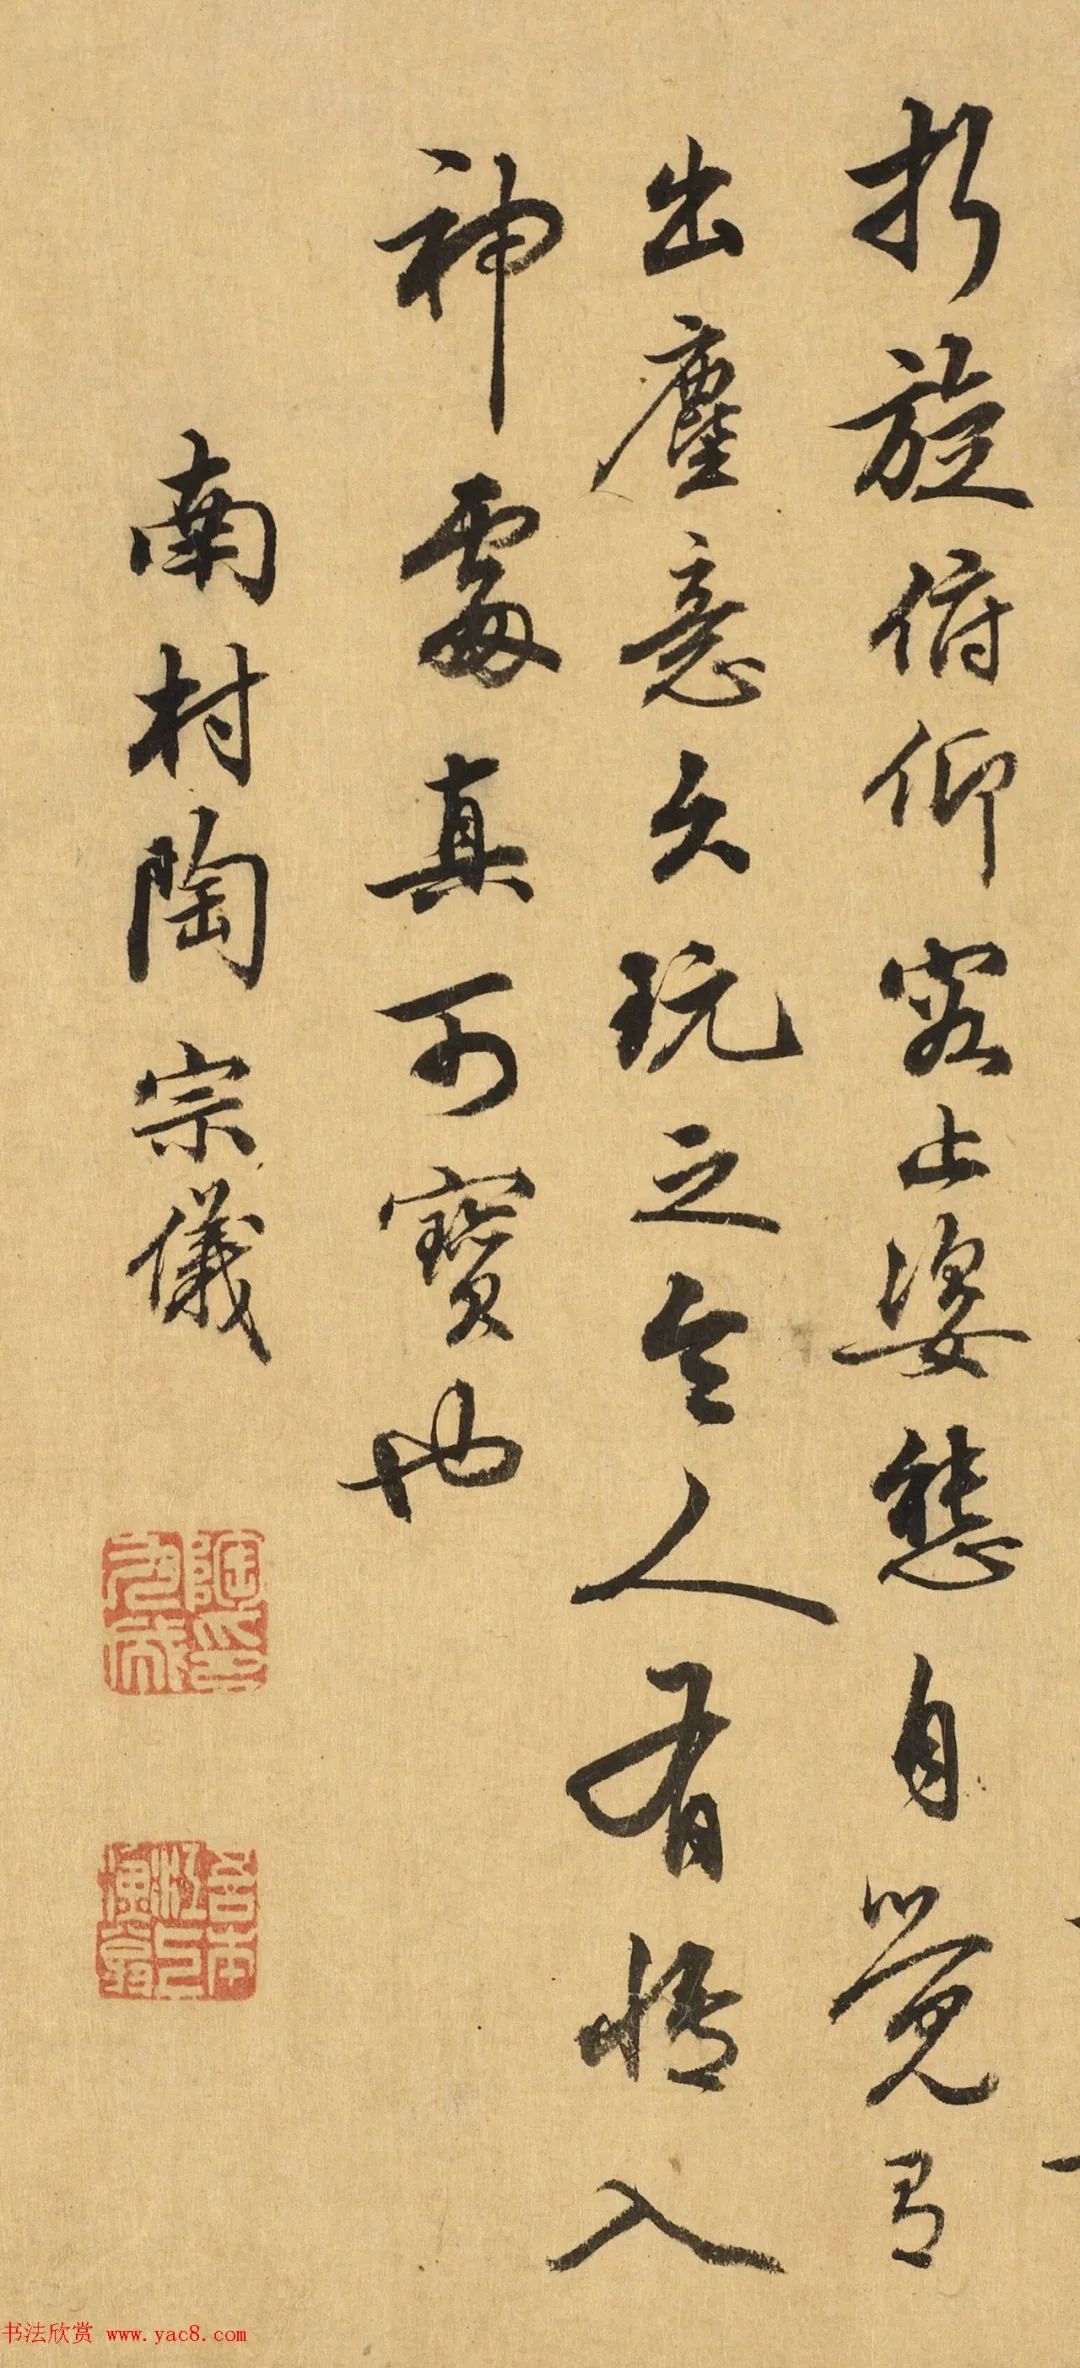 折旋俯仰容止姿態自覺有
出塵意久玩之令人有悟入
神處真可寶也
南村陶宗儀
陶九成印
书法欣赏 www.yac8.com